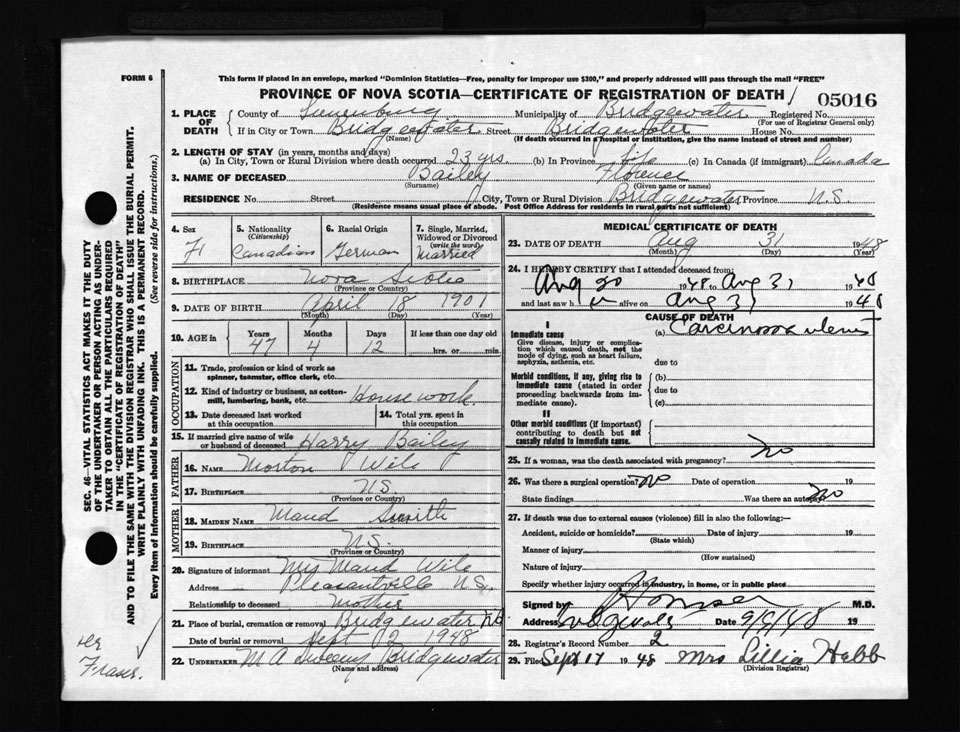 FORM 6
This form if placed in an envelope, marked "Dominion Statistics—Free, penalty for improper use $300," and properly addressed will pass through the mail "FREE"
PROVINCE OF NOVA SCOTIA—CERTIFICATE OF REGISTRATION OF DEATH
05016
1. PLACE OF DEATH
County of Lunenburg Municipality of Bridgewater Registered No.
(For use of Registrar General only)
If in City or Town Bridgewater Street Bridgewater House No.
(Name) (If death occurred in a hospital or institution, give the name instead of street and number)
2. LENGTH OF STAY (in years, months and days)
(a) In City, Town or Rural Division where death occurred 23 yrs. (b) In Province life (c) In Canada (if immigrant) Canada
3. NAME OF DECEASED Bailey Florence
(Surname) (Given name or names)
RESIDENCE No. Street City, Town or Rural Division Bridgewater Province N.S.
(Residence means usual place of abode. Post Office Address for residents in rural parts not sufficient)
4. Sex F
5. Nationality (Citizenship) Canadian
6. Racial Origin German
7. Single, Married, Widowed or Divorced (write the word) Married
8. BIRTHPLACE Nova Scotia
(Province or Country)
9. DATE OF BIRTH April 18 1901
(Month) (Day) (Year)
10. AGE in Years Months Days If less than one day old
47 4 12 hrs. or min.
OCCUPATION
11. Trade, profession or kind of work as spinner, teamster, office clerk, etc.
12. Kind of industry or business, as cotton-mill, lumbering, bank, etc. Housework.
13. Date deceased last worked at this occupation
14. Total yrs. spent in this occupation
15. If married give name of wife or husband of deceased Harry Bailey
FATHER
16. NAME Morton Wile
17. BIRTHPLACE N.S
(Province or Country)
MOTHER
18. MAIDEN NAME Maud Smith
19. BIRTHPLACE N.S.
(Province or Country)
20. Signature of informant Mrs Maud Wile
Address Pleasantville N.S.
Relationship to deceased Mother
21. Place of burial, cremation or removal Bridgewater N.S
Date of burial or removal Sept 2 1948
22. UNDERTAKER M A Sweeny Bridgewater
(Name and address)
MEDICAL CERTIFICATE OF DEATH
23. DATE OF DEATH Aug 31 1948
(Month) (Day) (Year)
24. I HEREBY CERTIFY that I attended deceased from:
Aug 20 1948 to Aug 31 1948
and last saw her alive on Aug 31 1948
CAUSE OF DEATH
I
Immediate cause (a) Carcinoma uterus
Give disease, injury or complication which caused death, not the mode of dying, such as heart failure, asphyxia, asthenia, etc. due to
Morbid conditions, if any, giving rise to immediate cause (stated in order proceeding backwards from immediate cause).
(b)
due to
(c)
II
Other morbid conditions (if important) contributing to death but not causally related to immediate cause.
25. If a woman, was the death associated with pregnancy? No
26. Was there a surgical operation? No Date of operation 19
State findings Was there an autopsy? No
27. If death was due to external causes (violence) fill in also the following:—
Accident, suicide or homicide? Date of injury 19
(State which)
Manner of injury
(How sustained)
Nature of injury
Specify whether injury occurred in industry, in home, or in public place
Signed by M.D.
Address Date 9/9/48 19
28. Registrar's Record Number 2
29. Filed Sept 17 1948 Mrs Lillia Hebb
(Division Registrar)
SEC. 46—VITAL STATISTICS ACT MAKES IT THE DUTY
OF THE UNDERTAKER OR PERSON ACTING AS UNDER-
TAKER TO OBTAIN ALL THE PARTICULARS REQUIRED
IN THE "CERTIFICATE OF REGISTRATION OF DEATH"
AND TO FILE THE SAME WITH THE DIVISION REGISTRAR WHO SHALL ISSUE THE BURIAL PERMIT.
WRITE PLAINLY WITH UNFADING INK. THIS IS A PERMANENT RECORD.
Every item of information should be carefully supplied. (See reverse side for instructions.)
Fraser.